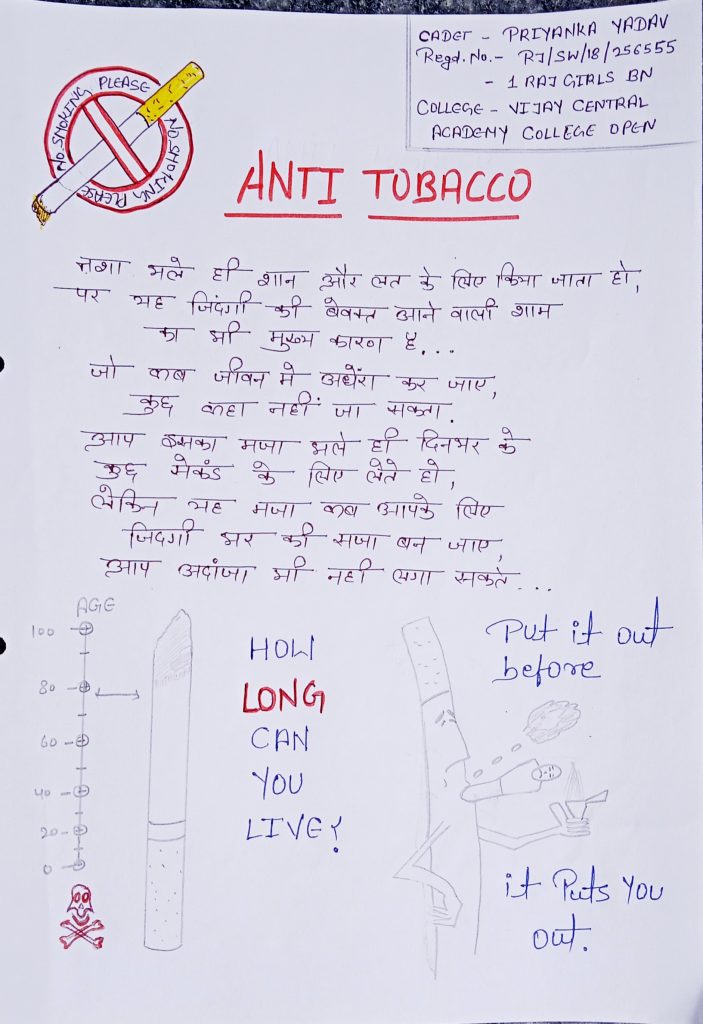 CADET - PRIYANKA YADAV
Regd. No. - RJ/SW/18/256555
- 1 RAJ GIRLS BN
COLLEGE - VIJAY CENTRAL
ACADEMY COLLEGE OPEN
NO SMOKING PLEASE
NO SMOKING PLEASE
ANTI TOBACCO
नशा भले ही शान और लत के लिए किया जाता हो,
पर यह जिंदगी की बेवक्त आने वाली शाम
का भी मुख्य कारण है...
जो कब जीवन मे अधेंरा कर जाए,
कुछ कहा नहीं जा सकता.
आप इसका मजा भले ही दिनभर के
कुछ सेकंड के लिए लेते हो,
लेकिन यह मजा कब आपके लिए
जिदगी भर की सजा बन जाए,
आप अदांजा भी नही लगा सकते...
AGE
100
80
60
40
20
0
HOW
LONG
CAN
YOU
LIVE?
Put it out
before
it Puts You
out.